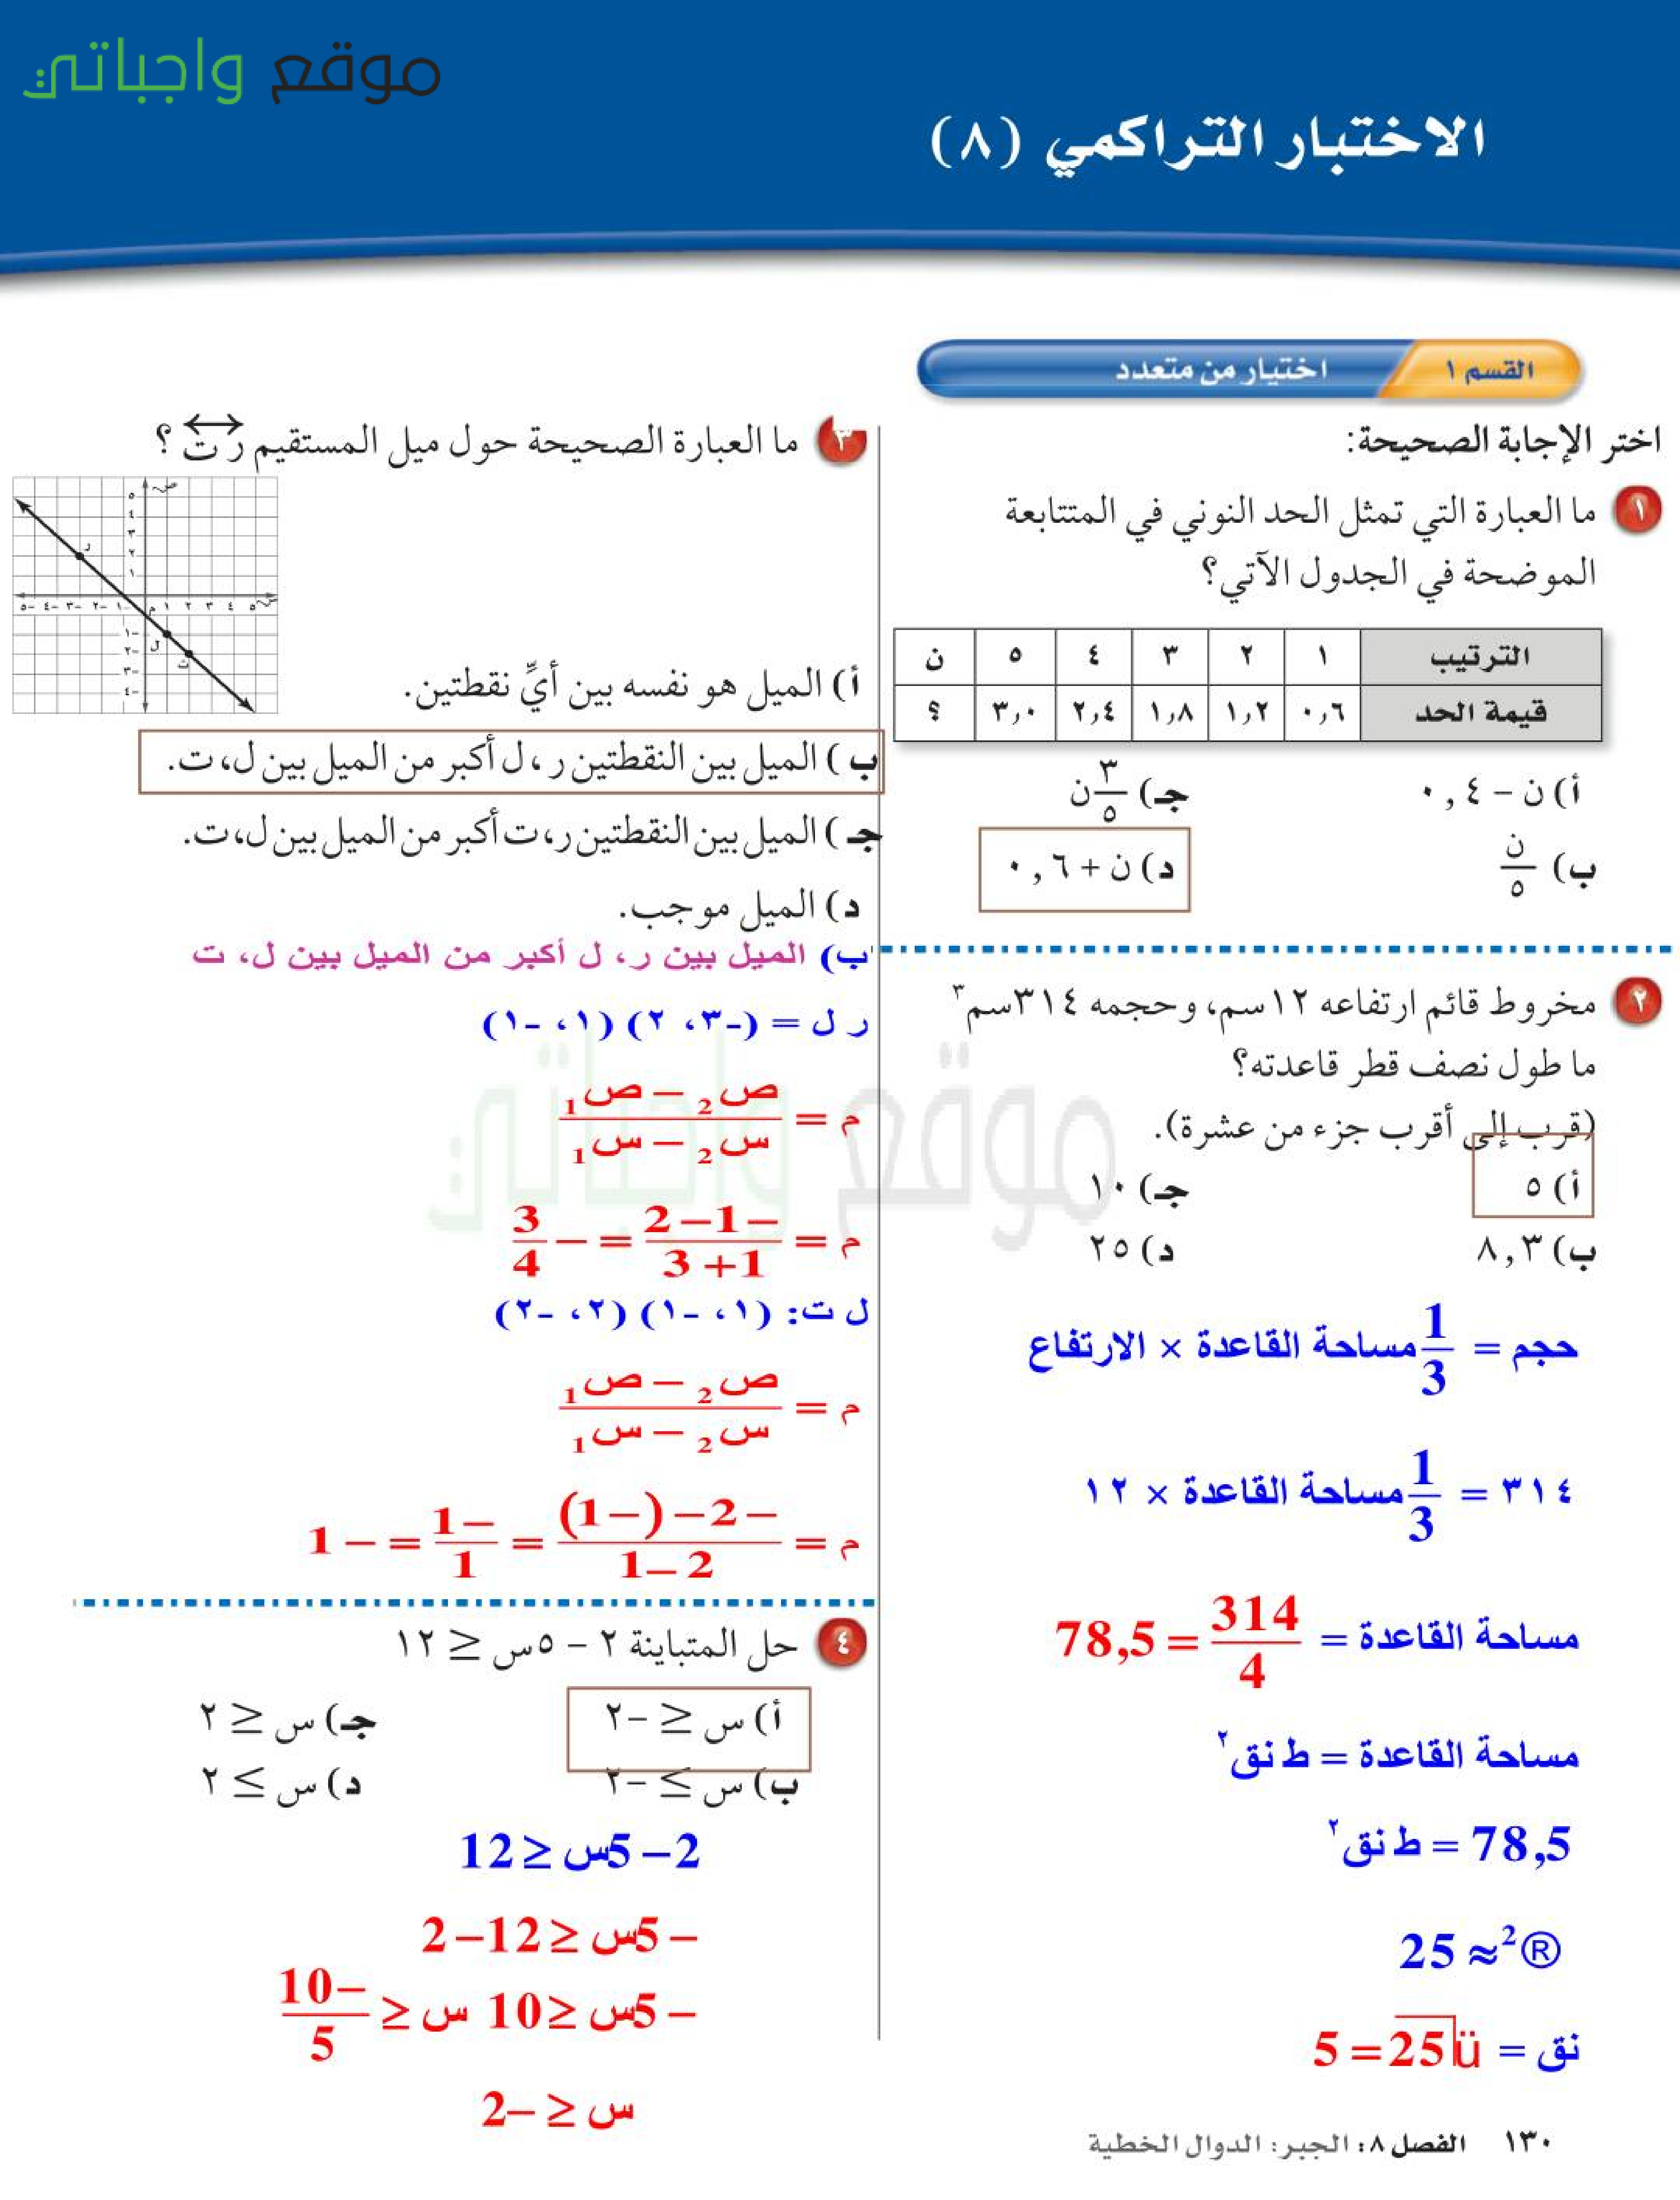 موقع واجباتي
الاختبار التراكمي (٨)
القسم ١ اختيار من متعدد
اختر الإجابة الصحيحة:
١ ما العبارة التي تمثل الحد النوني في المتتابعة
الموضحة في الجدول الآتي؟
الترتيب ١ ٢ ٣ ٤ ٥ ن
قيمة الحد ٠,٦ ١,٢ ١,٨ ٢,٤ ٣,٠ ؟
أ) ن – ٠,٤ جـ) ٣/٥ ن
ب) ن/٥ د) ن + ٠,٦
٢ مخروط قائم ارتفاعه ١٢سم، وحجمه ٣١٤سم٣
ما طول نصف قطر قاعدته؟
(قرب إلى أقرب جزء من عشرة).
أ) ٥ جـ) ١٠
ب) ٨,٣ د) ٢٥
حجم = 1/3 مساحة القاعدة × الارتفاع
٣١٤ = 1/3 مساحة القاعدة × ١٢
مساحة القاعدة = 314/4 = 78,5
مساحة القاعدة = ط نق٢
78,5 = ط نق٢
®2 ≈ 25
نق = ü25 = 5
٣ ما العبارة الصحيحة حول ميل المستقيم ر ت ؟
ص
٥
٤
٣
٢
١
–٥ –٤ –٣ –٢ –١ م ١ ٢ ٣ ٤ ٥ س
–١
–٢
–٣
–٤
ر
ل
ت
أ) الميل هو نفسه بين أيِّ نقطتين.
ب) الميل بين النقطتين ر، ل أكبر من الميل بين ل، ت.
جـ) الميل بين النقطتين ر، ت أكبر من الميل بين ل، ت.
د) الميل موجب.
ب) الميل بين ر، ل أكبر من الميل بين ل، ت
ر ل = (-٣، ٢) (١، -١)
م = ص2 – ص1 / س2 – س1
م = –1–2 / 1+3 = –3/4
ل ت: (١، -١) (٢، -٢)
م = ص2 – ص1 / س2 – س1
م = –2–(–1) / 2–1 = –1/1 = –1
٤ حل المتباينة ٢ – ٥س ≥ ١٢
أ) س ≥ –٢ جـ) س ≥ ٢
ب) س ≤ –٢ د) س ≤ ٢
2– 5س ≥ 12
– 5س ≥ 12–2
– 5س ≥ 10 س ≥ –10/5
س ≥ –2
١٣٠ الفصل ٨: الجبر: الدوال الخطية
موقع واجباتي